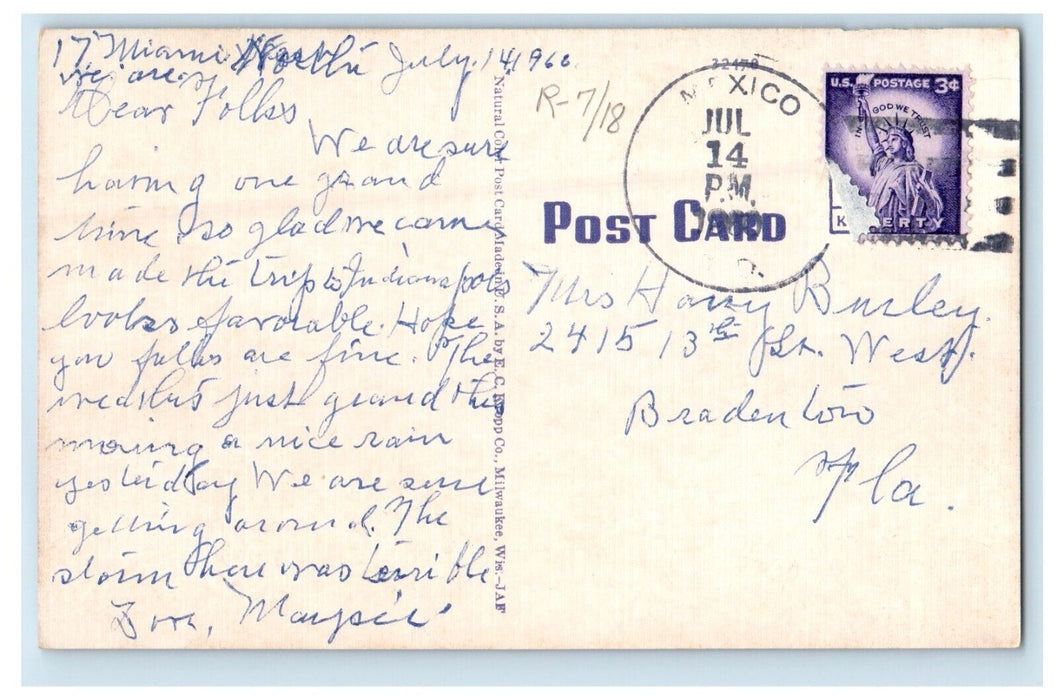 17 Miami North July 14 1960
we are
Dear Folks
We are sure
having one grand
time so glad we came
made the trip to Indianapolis
looks favorable. Hope
you folks are fine. The
weather just grand this
morning a nice rain
yesterday We are sure
getting around. The
storm there was terrible
Love,
Natural Color Post Card Made in U. S. A. by E. C. Kropp Co., Milwaukee, Wis.—JAF
R-7/18
MEXICO
JUL
14
P.M.
U.S. POSTAGE 3¢
IN GOD WE TRUST
ERTY
K
POST CARD
Mrs Harry Burley.
2415 13th St. West.
Bradenton
Fla.